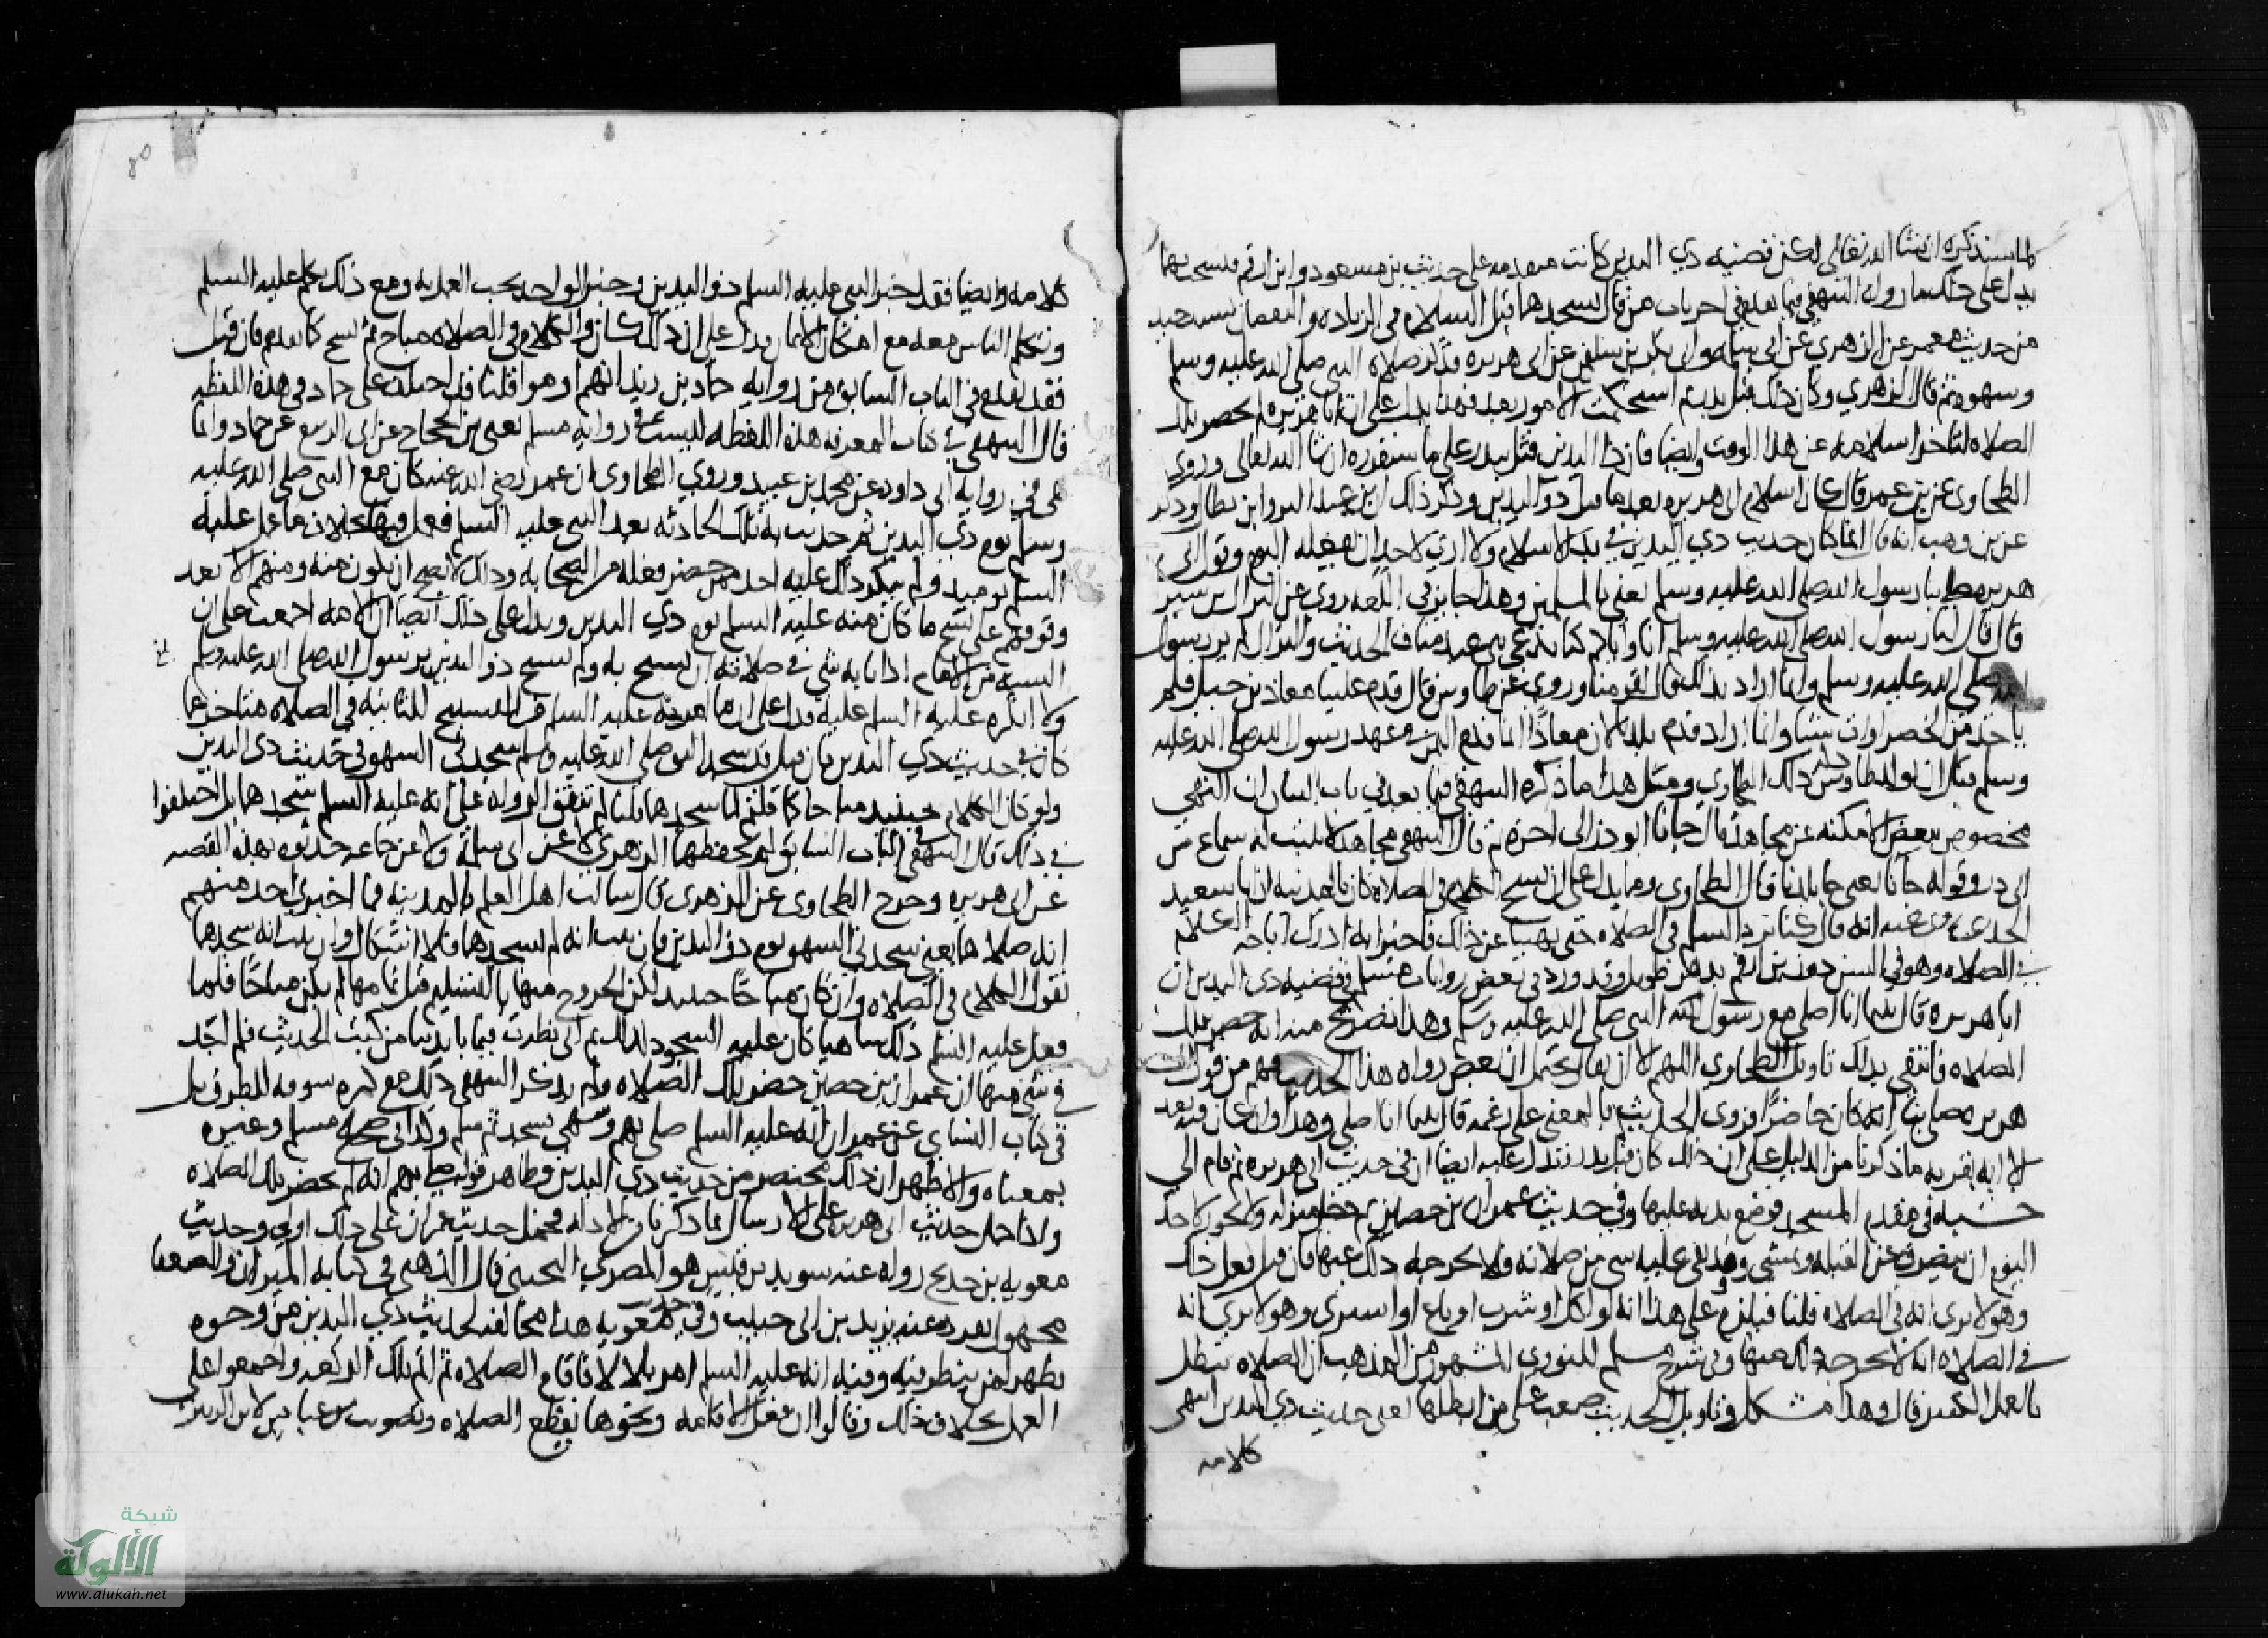 لما سنذكره ان شا الله تعالى لكن قضيه ذي اليدين كانت متقدمه على حديث بن مسعود وابن ارقم فنسخ بهما
يدل على ذلك ما رواه البيهقي فيما بعد في اخر باب من قال يسجدهما قبل السلام في الزياده والنقصان بسند جيد
من حديث معمر عن الزهري عن ابي سلمه وابي بكر بن سليمن عن ابي هريره فذكر صلاه النبي صلى الله عليه وسلم
وسهوه ثم قال الزهري وكان ذلك قبل بدر ثم استحكمت الامور بعد فهذا يدل على ان ابا هريره لم يحضر تلك
الصلاه لتاخر اسلامه عن هذا الوقت وايضا فان ذا اليدين قتل ببدر على ما سنقرره ان شا الله تعالى وروى
الطحاوي عن بن عمر قال كان اسلام ابي هريره بعد ما قتل ذو اليدين وذكر ذلك ابن عبد البر وابن بطال وذكر
عن بن وهب انه قال انما كان حديث ذي اليدين في بدء الاسلام ولا ارى لاحد ان يفعله اليوم وقول ابي
هريره صلى بنا رسول الله صلى الله عليه وسلم يعني بالمسلمين وهذا جايز في اللغه روي عن النزال بن سبره
قال قال لنا رسول الله صلى الله عليه وسلم انا واياكم كنا ندعى بني عبد مناف الحديث والنزال لم ير رسول
الله صلى الله عليه وسلم وانما اراد بذلك قال لقومنا وروي عن طاوس قال قدم علينا معاذ بن جبل فلم
ياخذ من الخضراوات شيئا وانما اراد قدم بلدنا لان معاذا انما قدم اليمن في عهد رسول الله صلى الله عليه
وسلم قبل ان يولد طاوس ذكر ذلك الطحاوي ومثل هذا ما ذكره البيهقي فيما بعد في باب البيان ان النهي
مخصوص ببعض الامكنه عن مجاهد قال جانا ابو ذر الى اخره ثم قال البيهقي مجاهد لا يثبت له سماع من
ابي ذر وقوله جانا يعني جا بلدنا قال الطحاوي ومما يدل على ان نسخ الكلام في الصلاه كان بالمدينه ان ابا سعيد
الخدري رضي عنه انه قال كنا نرد السلم في الصلاه حتى نهينا عن ذلك فاخبر انه ادرك اباحه الكلام
في الصلاه وهو في السن دون بن ارقم بدهر طويل وقد ورد في بعض روايات مسلم في قضيه ذي اليدين ان
ابا هريره قال بينما انا اصلي مع رسول الله النبي صلى الله عليه وسلم وهذا تصريح منه انه حضر تلك
الصلاه فانتفى بذلك تاويل الطحاوي اللهم الا ان يقال يحتمل ان بعض رواه هذا الحديث فهم من قول ابي
هريره صلى بنا انه كان حاضرا فروى الحديث بالمعنى على زعمه قال بينا انا اصلي وهذا وان كان فيه بعد
الا انه يقربه ما ذكرنا من الدليل على ان ذلك كان قبل بدر ويدل عليه ايضا ان في حديث ابي هريره ثم قام الى
خشبه في مقدم المسجد فوضع يديه عليها وفي حديث عمران بن حصين ثم دخل منزله ولا يجوز لاحد
اليوم ان ينصرف عن القبله ويمشي وقد بقي عليه شي من صلاته فلا يخرجه ذلك عنها فان قيل فعل ذلك
وهو لا يرى انه في الصلاه قلنا فيلزم على هذا انه لو اكل او شرب او باع او اشترى وهو لا يرى انه
في الصلاه انه لا يخرجه ذلك عنها وفي شرح مسلم للنووي المشهور من المذهب ان الصلاه تبطل
بالعمل الكثير قال وهذا مشكل وتاويل الحديث صعب على من ابطلها يعني حديث ذي اليدين انتهى
كلامه
80
كلامه وايضا فقد اخبر النبي عليه السلم ذو اليدين وخبر الواحد يجب العمل به ومع ذلك تكلم عليه السلم
وتكلم الناس معه مع امكان الايما يدل على ان ذلك كان والكلام في الصلاه مباح ثم نسخ كما تقدم فان قيل
فقد تقدم في الباب السابق من روايه حماد بن زيد انهم اوموا قلنا قد اختلف على حماد في هذه اللفظه
قال البيهقي في كتاب المعرفه هذه اللفظه ليست في روايه مسلم يعني بن الحجاج عن ابي الربيع عن حماد وانما
هي في روايه ابي داود عن محمد بن عبيد وروى الطحاوي ان عمر رضي الله عنه كان مع النبي صلى الله عليه
وسلم يوم ذي اليدين ثم حدثت به تلك الحادثه بعد النبي عليه السلم فعمل فيها بخلاف ما عمل عليه
السلم يوميذ ولم ينكر ذلك عليه احد ممن حضر فعله من الصحابه وذلك لا يصح ان يكون منه ومنهم الا بعد
وقوفهم على نسخ ما كان منه عليه السلم يوم ذي اليدين ويدل على ذلك ايضا ان الامه اجمعت على ان
السنه من الامام اذا نابه شي في صلاته ان يسبح به ولم يسبح ذو اليدين برسول الله صلى الله عليه وسلم
ولا انكره عليه السلم عليه فدل على ان ما امر به عليه السلم من التسبيح للنائبه في الصلاه متاخر عما
كان في حديث ذي اليدين فان قيل قد سجد النبي صلى الله عليه وسلم سجدتي السهو في حديث ذي اليدين
ولو كان الكلام حينيذ مباحا كما قلتم لما سجدهما قلنا لم تتفق الرواه على انه عليه السلم سجدهما بل اختلفوا
في ذلك قال البيهقي في الباب السابق لم يحفظهما الزهري لا عن ابي سلمه ولا عن جماعه حدثوه بهذه القصه
عن ابي هريره وخرج الطحاوي عن الزهري قال سالت اهل العلم بالمدينه فما اخبرني احد منهم
انه صلاهما يعني سجدتي السهو يوم ذو اليدين فان ثبت انه لم يسجدهما فلا اشكال وان ثبت انه سجدهما
نقول الكلام في الصلاه وان كان مباحا حينيذ لكن الخروج منها بالتسليم قبل تمامها لم يكن مباحا فلما
فعل عليه السلم ذلك ساهيا كان عليه السجود لذلك ثم اني نظرت فيما بايدينا من كتب الحديث فلم اجد
في شي منها ان عمران بن حصين حضر تلك الصلاه ولم يذكر البيهقي ذلك مع كثره سوقه للطرق بل
في كتاب النسائي عن عمران انه عليه السلم صلى بهم وسهى فسجد ثم سلم وكذا في صحيح مسلم وغيره
بمعناه والاظهر ان ذلك مختصر من حديث ذي اليدين وظاهر قوله صلى بهم انه لم يحضر تلك الصلاه
واذا حمل حديث ابي هريره على الارسال بما ذكرنا من الادله فحمل حديث عمران على ذلك اولى وحديث
معويه بن حديج رواه عنه سويد بن قيس هو المصري التجيبي قال الذهبي في كتابه الميزان والضعفا
مجهول تفرد عنه يزيد بن ابي حبيب وفي حديث معويه هذا مخالفه لحديث ذي اليدين من وجوه
تظهر لمن ينظر فيه وفيه انه عليه السلم امر بلالا فاقام الصلاه ثم اتم تلك الركعه واجمعوا على
العمل بخلاف ذلك وقالوا ان فعل الاقامه ونحوها يقطع الصلاه وتصويب بن عباس لابن الزبير
شبكة
الألوكة
www.alukah.net